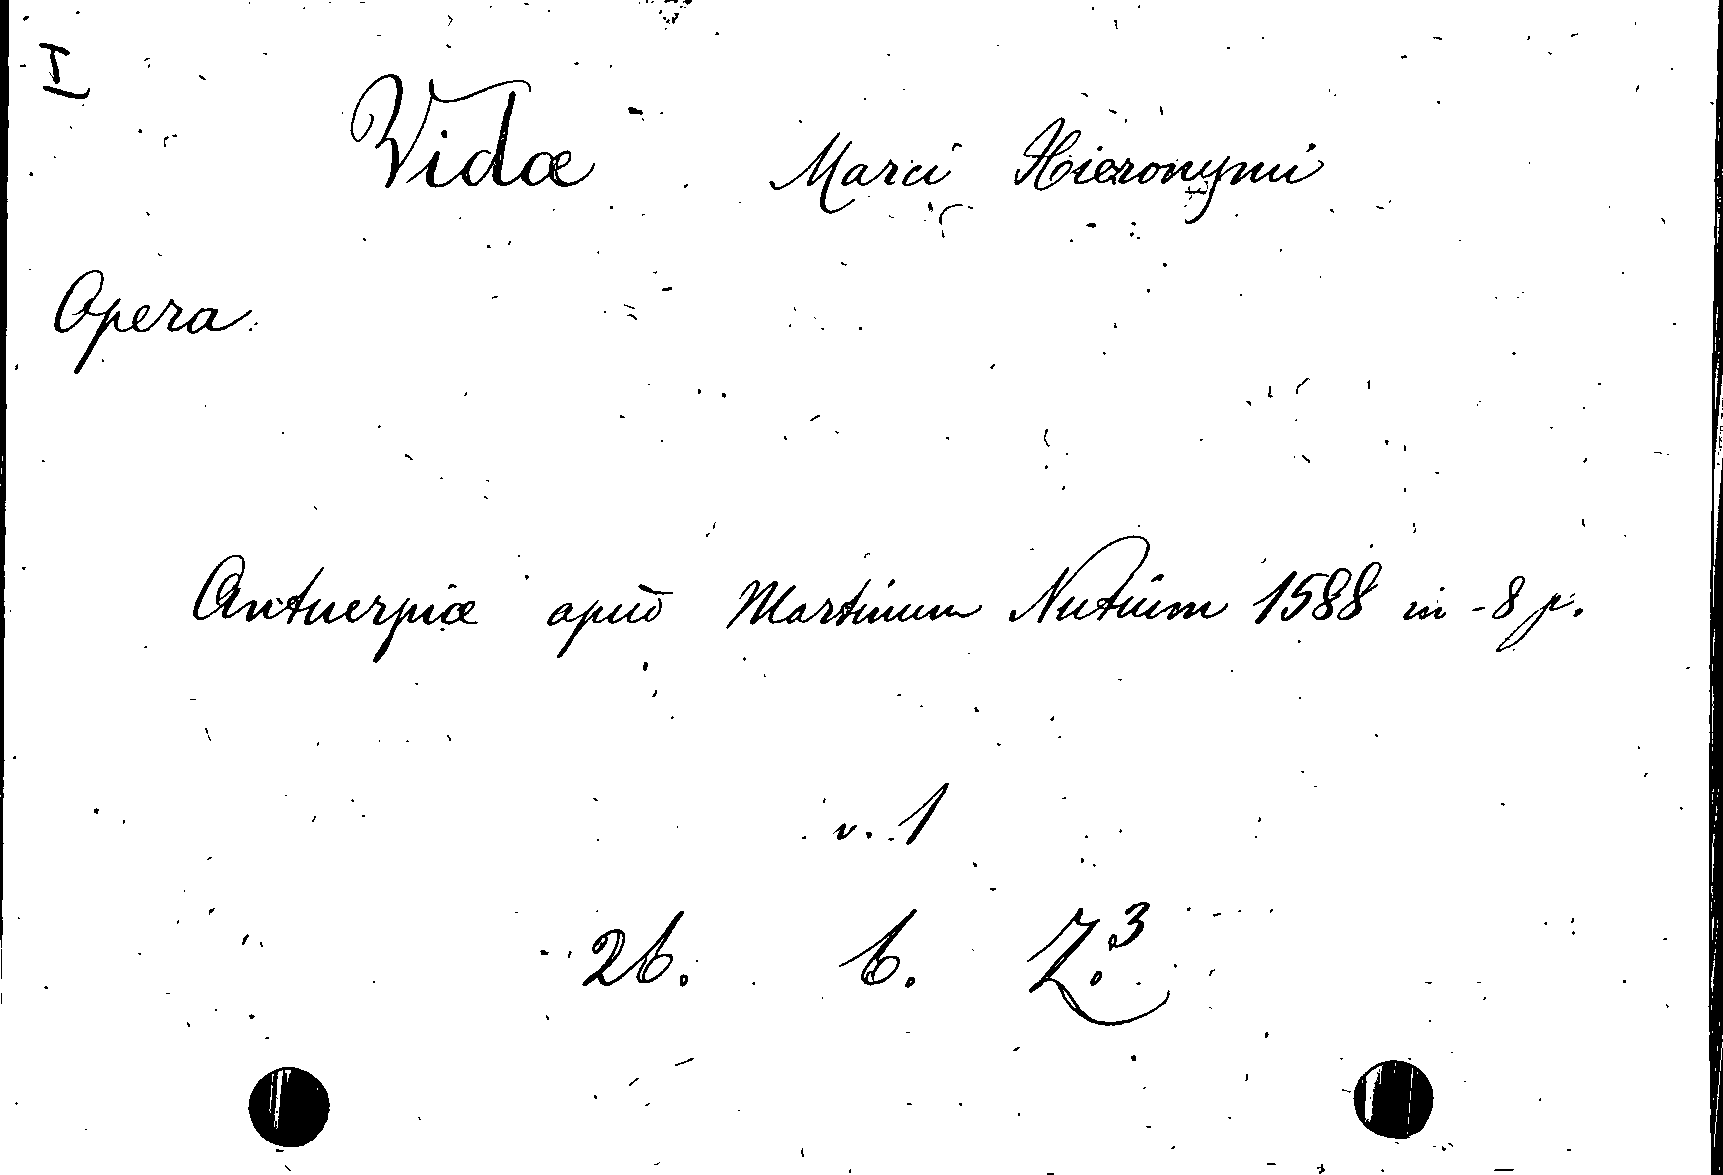 I
Vidæ Marci Hieronymi
Opera
Antuerpiæ apud Martinum Nutium 1588 in-8 p.
v. 1
26. 6. Z.3